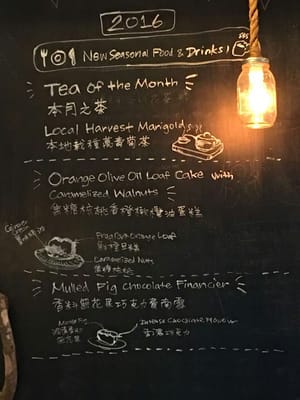 2016
New Seasonal Food & Drinks!
Tea of the Month
本月之茶
Local Harvest Marigold
本地種萬壽菊茶
Orange Olive Oil Loaf Cake with
Caramelized Walnuts
焦糖核桃香橙橄欖油蛋糕
Orange Loaf
Caramelized Nuts
焦糖核桃
Mulled Fig Chocolate Financier
香料無花果巧克力費南雪
Mulled Fig
無花果
Intense Chocolate Flavour
香濃巧克力